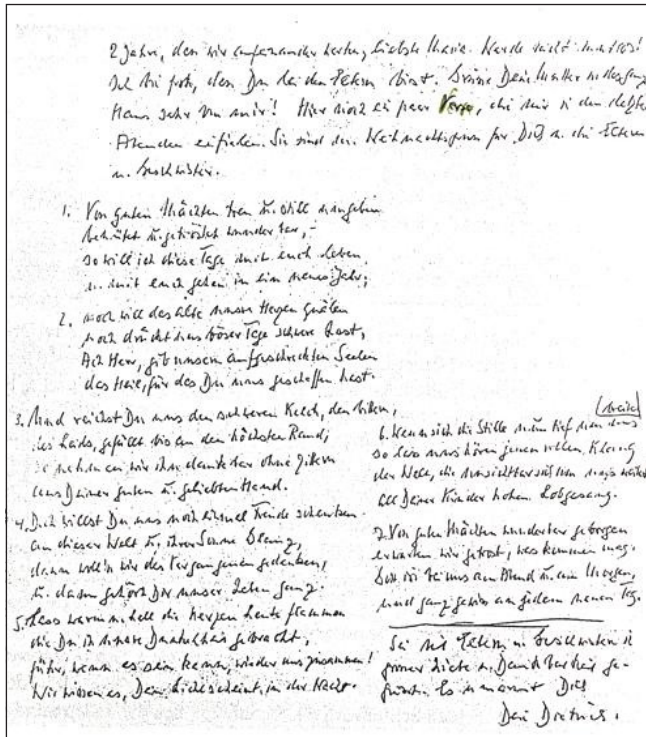 2 Jahre, dass wir aufeinander warten, liebste Maria. Werde nicht mutlos!
Ich bin froh, dass Du bei den Eltern bist. Grüsse Deine Mutter u. das ganze
Haus sehr von mir! Hier noch ein paar Verse, die mir in den letzten
Abenden einfielen. Sie sind der Weihnachtsgruss für Dich u. die Eltern
u. Geschwister.
1. Von guten Mächten treu u. still umgeben
behütet u. getröstet wunderbar,-
so will ich diese Tage mit euch leben
u. mit euch gehen in ein neues Jahr;
2. noch will das alte unsre Herzen quälen
noch drückt uns böser Tage schwere Last,
Ach Herr, gib unsern aufgeschreckten Seelen
das Heil, für das Du uns geschaffen hast.
3. Und reichst Du uns den schweren Kelch, den bittern,
des Leids, gefüllt bis an den höchsten Rand,
so nehmen wir ihn dankbar ohne Zittern
aus Deiner guten u. geliebten Hand.
4. Doch willst Du uns noch einmal Freude schenken
an dieser Welt u. ihrer Sonne Glanz,
dann woll'n wir des Vergangenen gedenken,
u. dann gehört Dir unser Leben ganz.
5. Lass warm u. hell die Kerzen heute flammen
die Du in unsre Dunkelheit gebracht,
führ, wenn es sein kann, wieder uns zusammen!
Wir wissen es, Dein Licht scheint in der Nacht.
6. Wenn sich die Stille nun tief um uns
(breitet)
so lass uns hören jenen vollen Klang
der Welt, die unsichtbar sich um uns weitet
all Deiner Kinder hohen Lobgesang.
7. Von guten Mächten wunderbar geborgen
erwarten wir getrost, was kommen mag.
Gott ist bei uns am Abend u. am Morgen,
und ganz gewiss an jedem neuen Tag.
Sei mit Eltern u. Geschwistern in
grosser Liebe u. Dankbarkeit ge-
grüsst. Es umarmt Dich
Dein Dietrich.